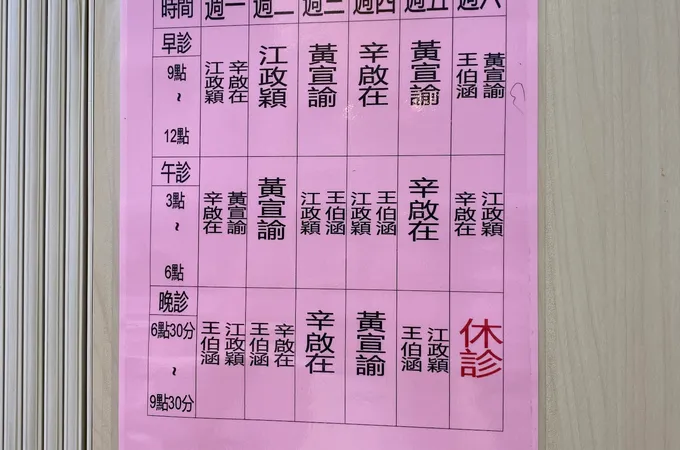 時間 週一 週二 週三 週四 週五 週六
早診
9點
~
12點
江政穎 辛啟在
江政穎
黃宣諭
辛啟在
黃宣諭
王伯涵 黃宣諭
午診
3點
~
6點
辛啟在 黃宣諭
黃宣諭
江政穎 王伯涵
江政穎 王伯涵
辛啟在
辛啟在 江政穎
晚診
6點30分
~
9點30分
王伯涵 江政穎
王伯涵 辛啟在
辛啟在
黃宣諭
王伯涵 江政穎
休診